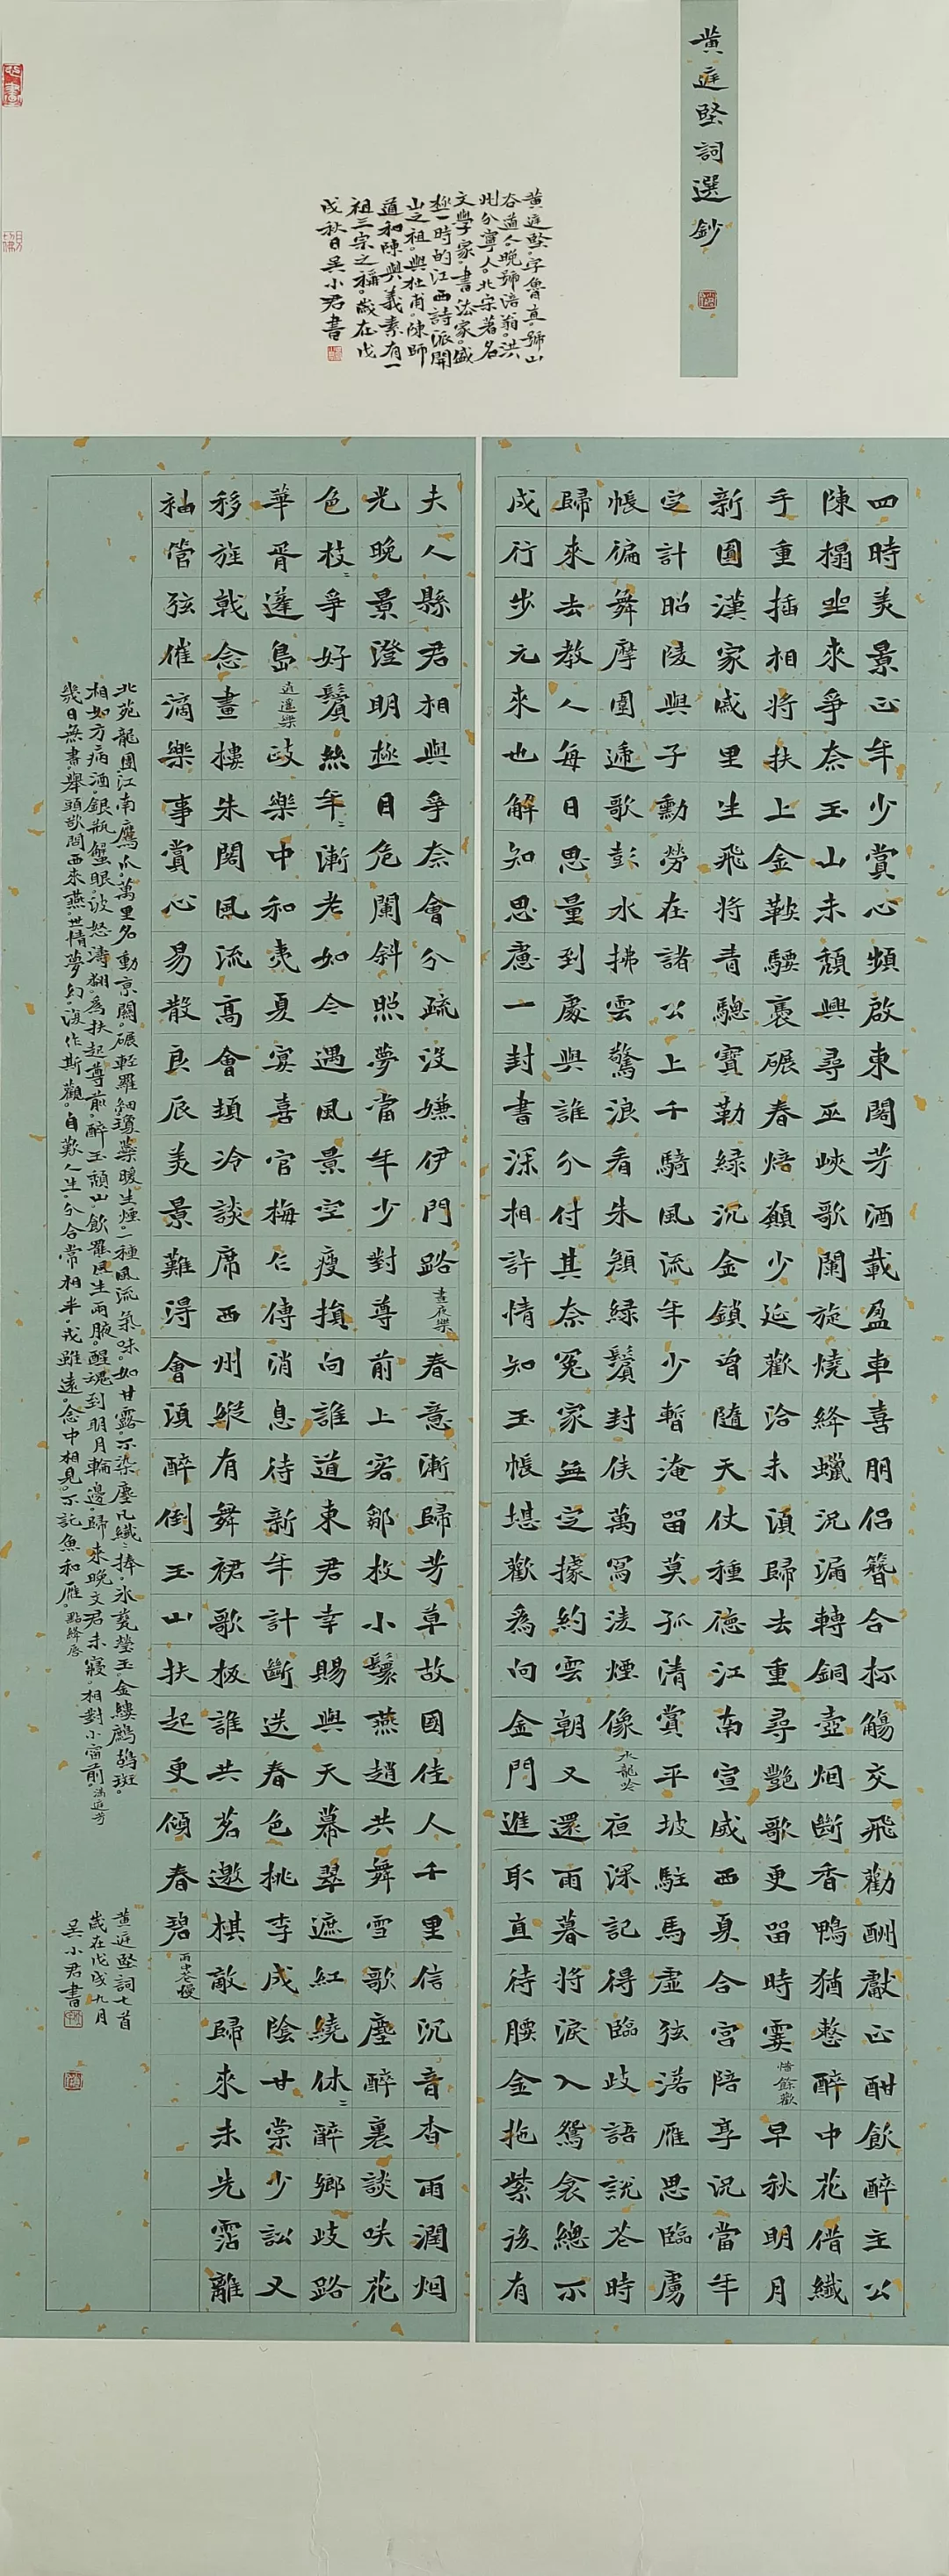 黄庭堅詞選鈔
黄庭堅。字魯直。號山
谷道人。晚號涪翁。洪
州分寧人。北宋著名
文學家。書法家。盛
極一時的江西詩派開
山之祖。與杜甫。陳師
道和陳與義素有一
祖三宗之稱。歲在戊
戌秋日吴小君書
四時美景正年少賞心頻啟東閣芳酒載盈車喜朋侶簪合杯觴交飛勸酬獻正酣飲醉主公
陳榻坐來爭奈玉山未頹興尋巫峽歌闌旋燒絳蠟況漏轉銅壺烟斷香鴨猶整醉中花借纖
手重插相將扶上金鞍騕褭碾春焙願少延歡洽未須歸去重尋艷歌更留時霎惜餘歡早秋明月
新圓漢家戚里生飛將青驄寶勒綠沉金鎖曾隨天仗種德江南宣威西夏合宮陪享況當年
定計昭陵與子勳勞在諸公上千騎風流年少暫淹留莫孤清賞平坡駐馬虛弦落雁思臨虜
帳徧舞摩圍遞歌彭水拂雲驚浪看朱顏綠鬢封侯萬寫淩煙像水龍吟夜深記得臨歧語說花時
歸來去教人每日思量到處與誰分付其奈冤家無定據約雲朝又還雨暮將淚入鴛衾總不
成行步元來也解知思慮一封書深相許情知玉帳堪歡為向金門進取直待腰金拖紫後有
夫人縣君相與爭奈會分疏沒嫌伊門路晝夜樂春意漸歸芳草故國佳人千里信沉音杳雨潤烟
光晚景澄明極目危闌斜照夢當年少對尊前上客鄒枚小鬟燕趙共舞雪歌塵醉裏談咲花
色枝々爭好鬢絲年々漸老如今遇風景空瘦損向誰道東君幸賜與天幕翠遮紅繞休々醉鄉歧路
華胥蓬島逍遥樂政樂中和夷夏宴喜官梅乍傳消息待新年計斷送春色桃李成陰甘棠少訟又
移旌戟念畫樓朱閣風流高會頓冷談席西州縱有舞裙歌板誰共茗邀棋敵歸來未先霑離
袖管弦催滴樂事賞心易散良辰美景難得會須醉倒玉山扶起更傾春碧雨中花慢
北苑龍團。江南鷹爪。萬里名動京關。碾輕羅細。瓊蘂暖生煙。一種風流氣味。如甘露。不染塵凡。纖々捧。冰瓷瑩玉。金縷鷓鴣斑。
相如方病酒。銀瓶蟹眼。波怒濤翻。為扶起尊前。醉玉頹山。飲罷風生兩腋。醒魂到明月輪邊。歸來晚。文君未寢。相對小窗前。滿庭芳
幾日無書。舉頭欲問西來燕。世情夢幻。復作斯觀。自歎人生。分合常相半。戎雖遠。念中相見。不託魚和雁。點絳唇
黄庭堅詞七首
歲在戊戌九月
吴小君書